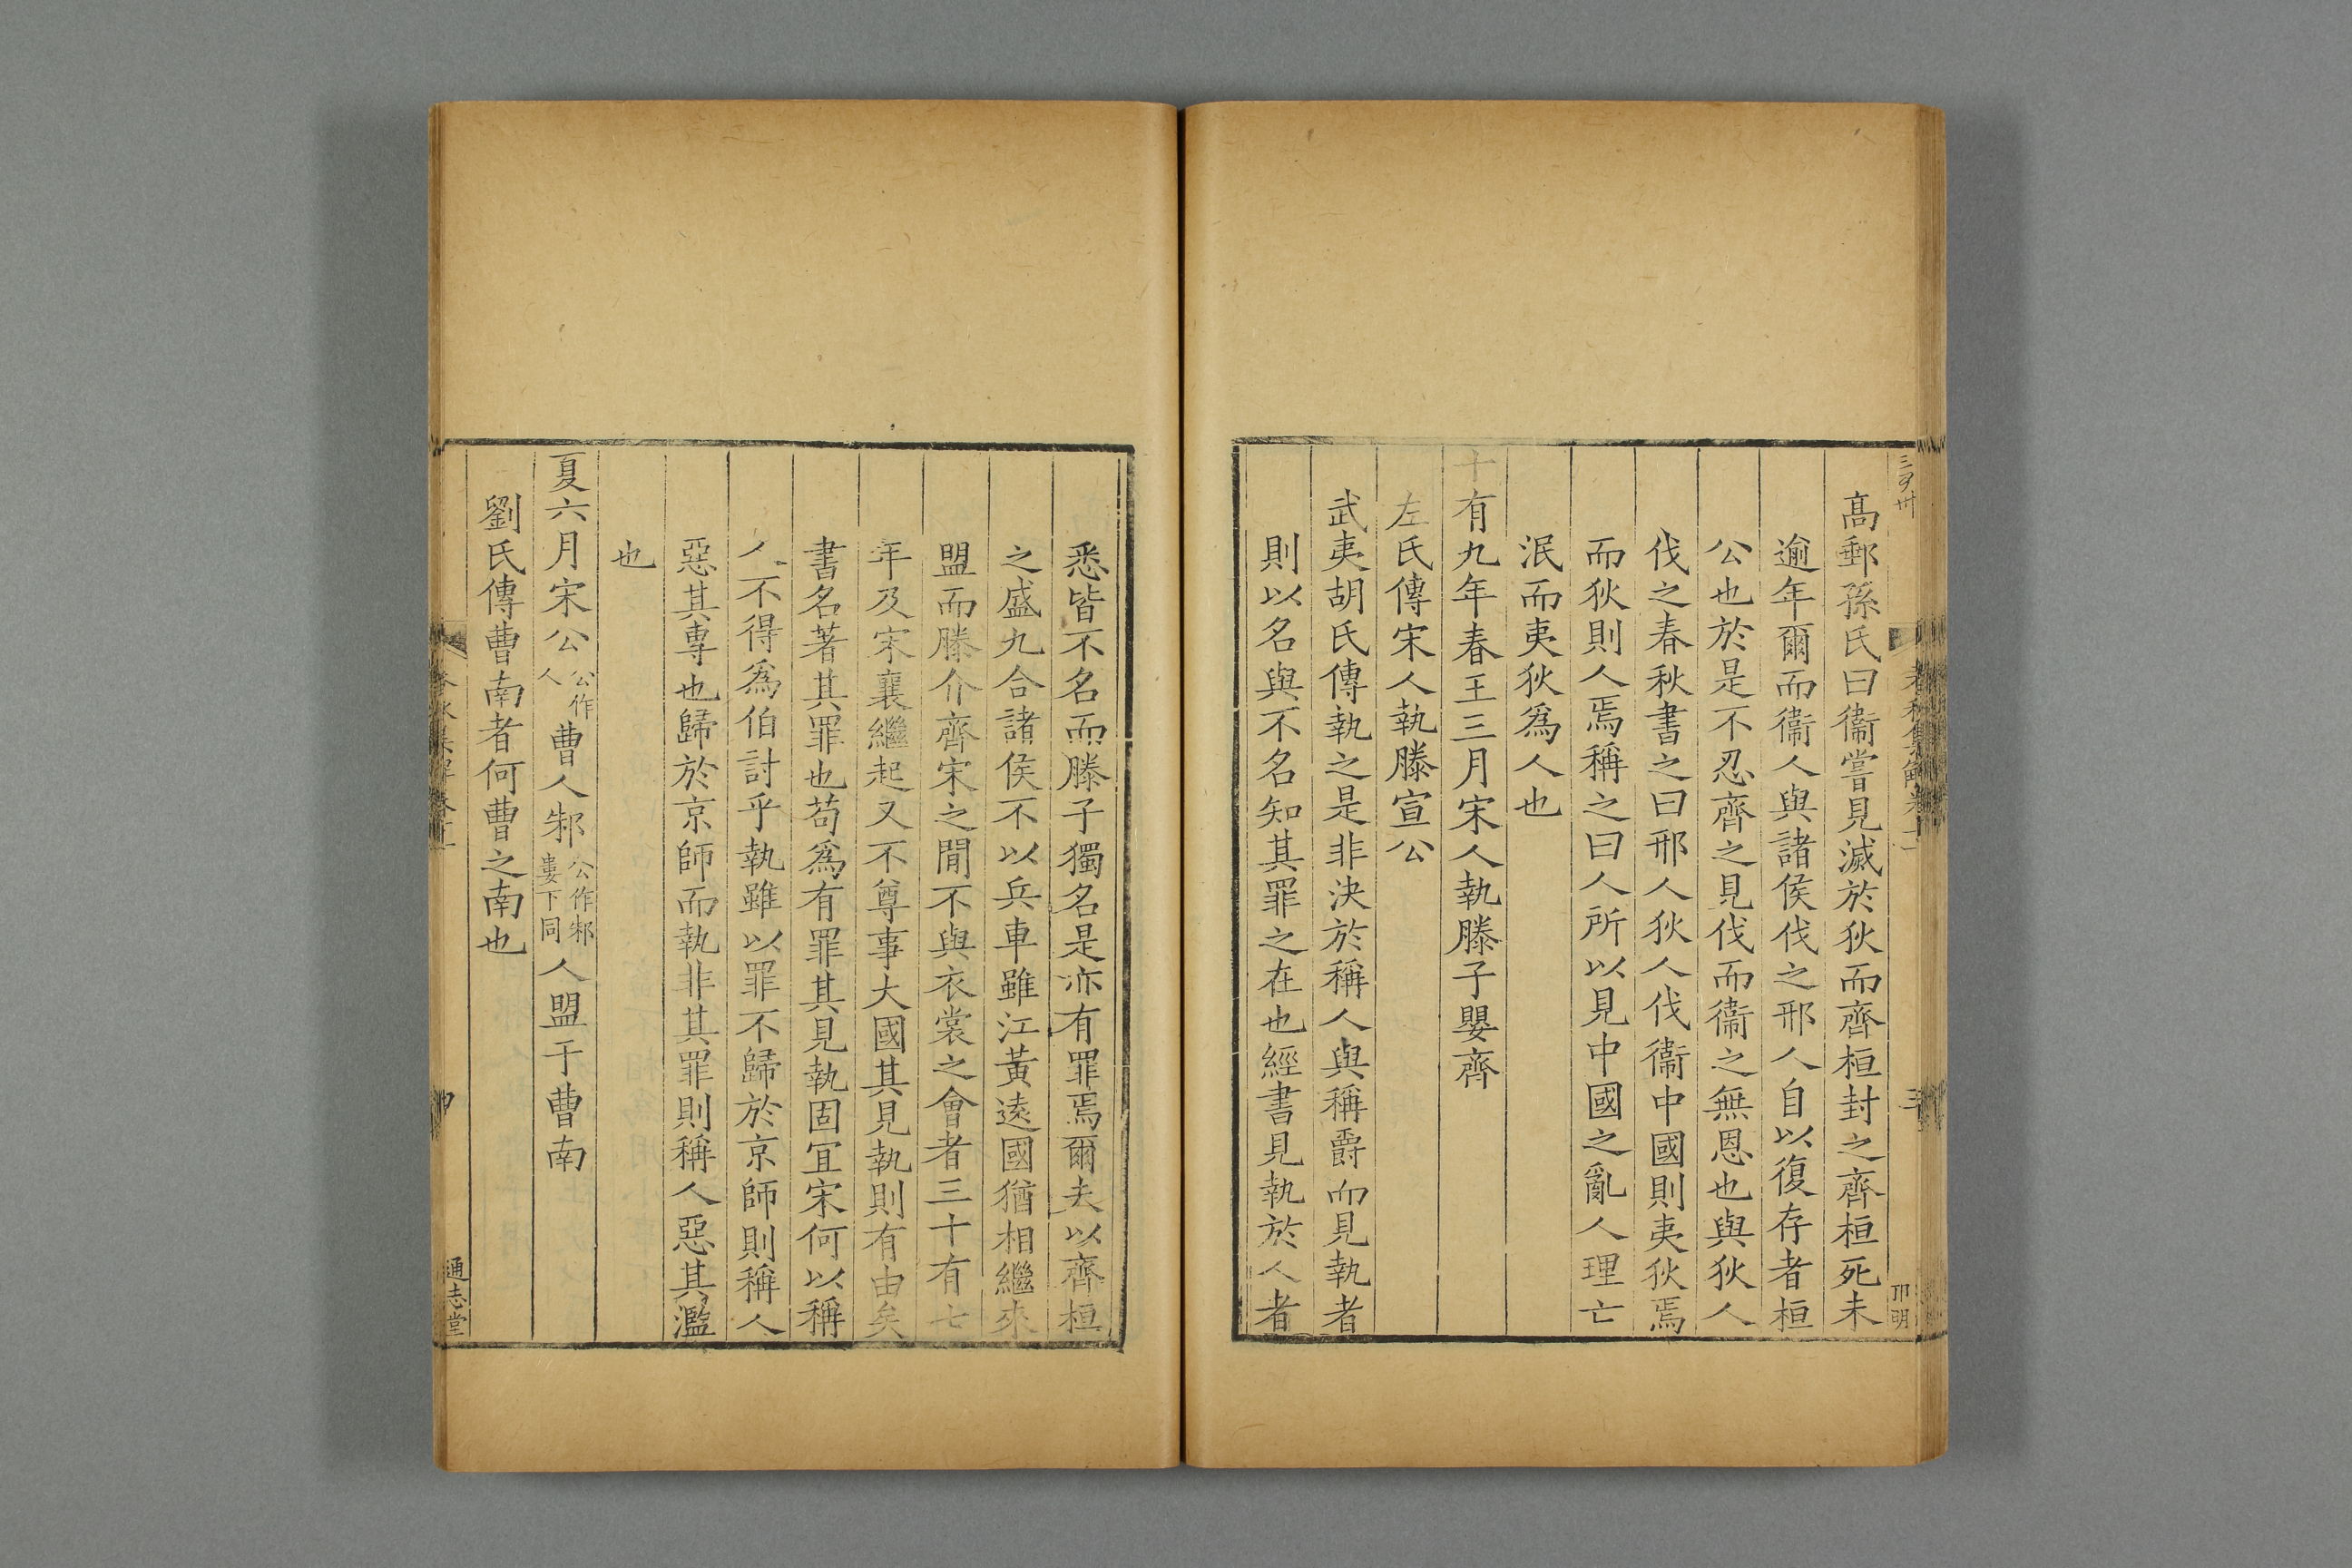 高郵孫氏曰衞嘗見滅於狄而齊桓封之齊桓死未
逾年爾而衞人與諸侯伐之邢人自以復存者桓
公也於是不忍齊之見伐而衞之無恩也與狄人
伐之春秋書之曰邢人狄人伐衞中國則夷狄焉
而狄則人焉稱之曰人所以見中國之亂人理亡
泯而夷狄爲人也
十有九年春王三月宋人執滕子嬰齊
左氏傳宋人執滕宣公
武夷胡氏傳執之是非決於稱人與稱爵而見執者
則以名與不名知其罪之在也經書見執於人者
悉皆不名而滕子獨名是亦有罪焉爾夫以齊桓
之盛九合諸侯不以兵車雖江黃遠國猶相繼來
盟而滕介齊宋之間不與衣裳之會者三十有七
年及宋襄繼起又不尊事大國其見執則有由矣
書名著其罪也苟爲有罪其見執固宜宋何以稱
人不得爲伯討乎執雖以罪不歸於京師則稱人
惡其專也歸於京師而執非其罪則稱人惡其濫
也
夏六月宋公公作人曹人邾公作邾婁下同人盟于曹南
劉氏傳曹南者何曹之南也
春秋集解卷十一
通志堂